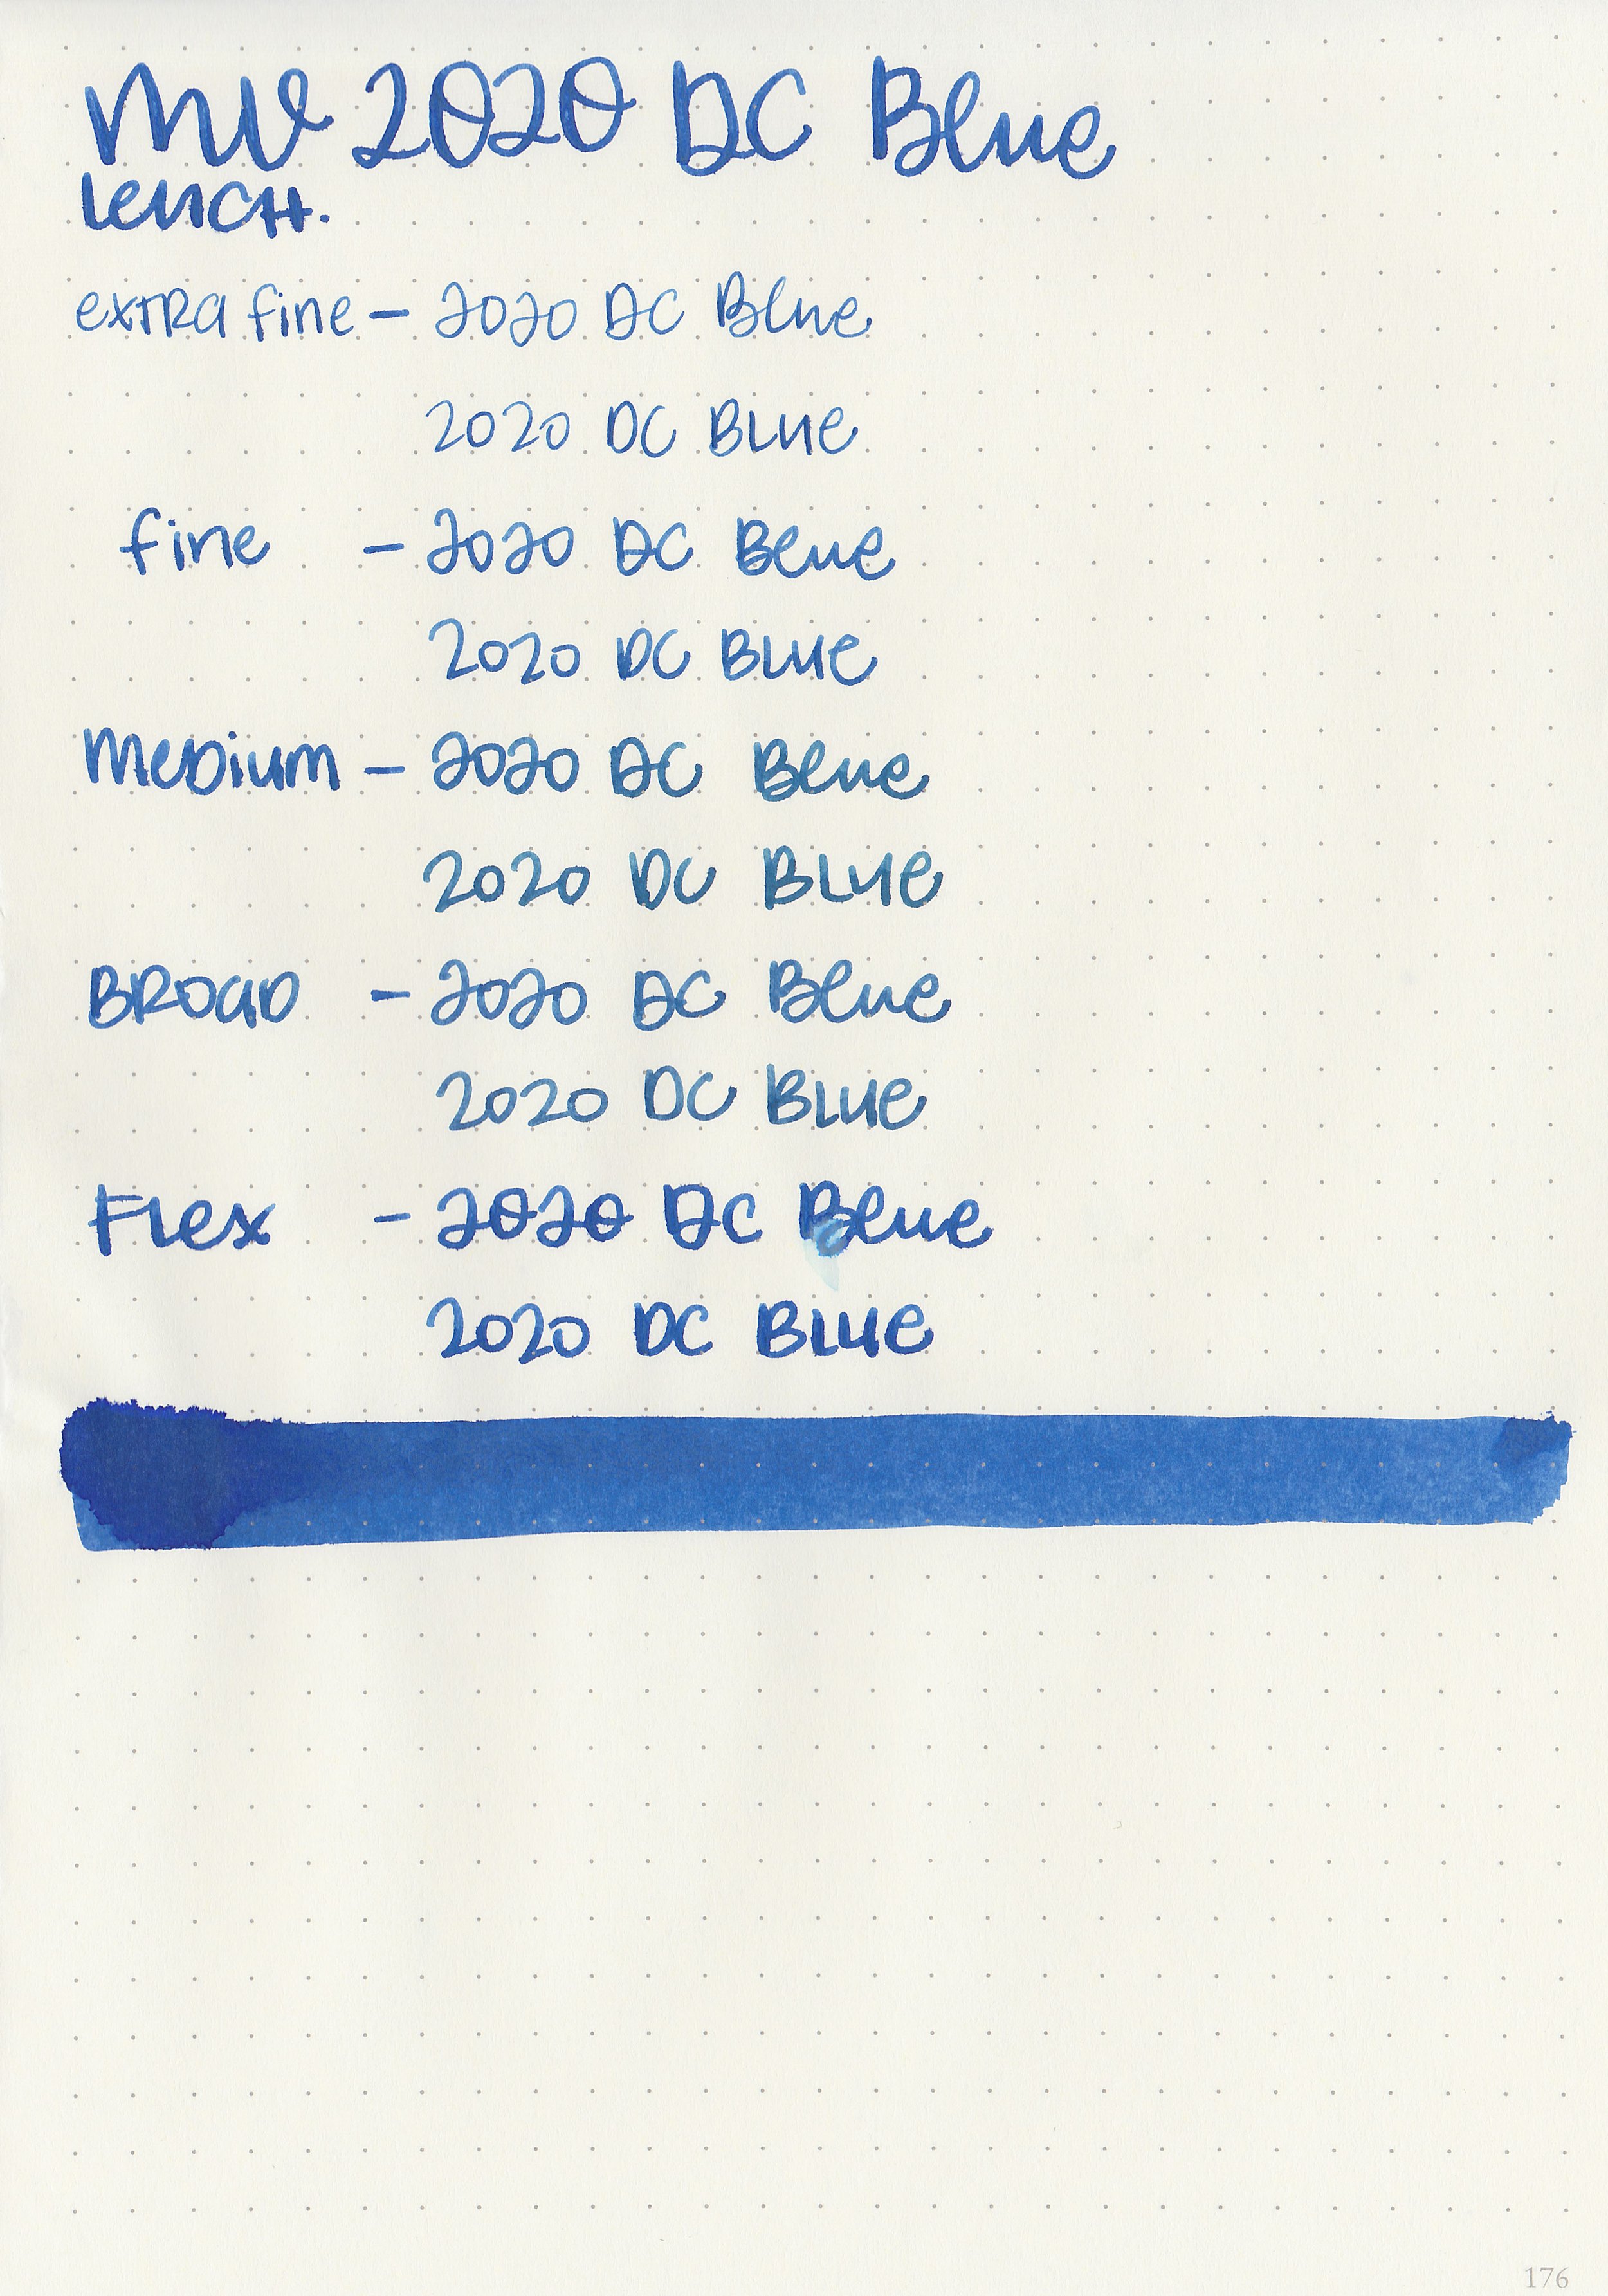 MV 2020 DC Blue
Leuch.
extra fine - 2020 DC Blue
2020 DC Blue
fine - 2020 DC Blue
2020 DC Blue
Medium - 2020 DC Blue
2020 DC Blue
Broad - 2020 DC Blue
2020 DC Blue
Flex - 2020 DC Blue
2020 DC Blue
176